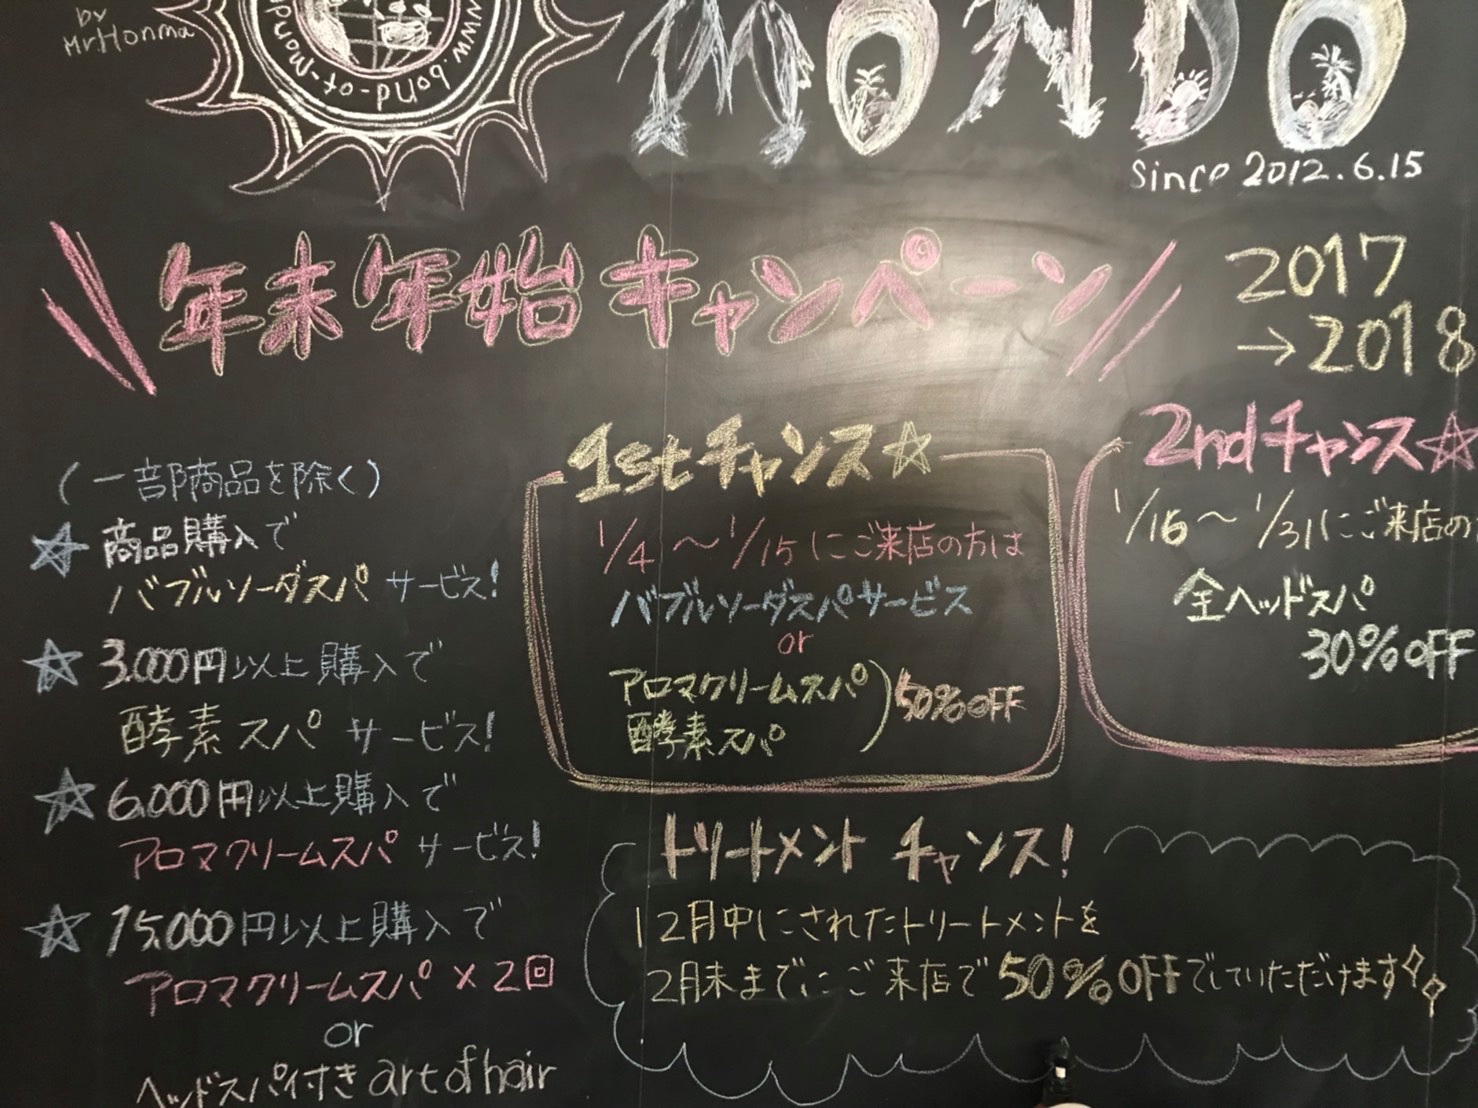 by
Mr Honma
www.bond-of-mond
MONDO
since 2012.6.15
年末年始キャンペーン
2017
→2018
(一部商品を除く)
☆商品購入で
バブルソーダスパ サービス!
☆3.000円以上購入で
酵素スパ サービス!
☆6.000円以上購入で
アロマクリームスパ サービス!
☆15.000円以上購入で
アロマクリームスパ×2回
or
ヘッドスパ付き art of hair
1stチャンス☆
1/4～1/15にご来店の方は
バブルソーダスパサービス
or
アロマクリームスパ
酵素スパ
)50%OFF
2ndチャンス☆
1/16～1/31にご来店の
全ヘッドスパ
30%OFF
トリートメント チャンス!
12月中にされたトリートメントを
2月末までにご来店で50%OFFでしていただけます